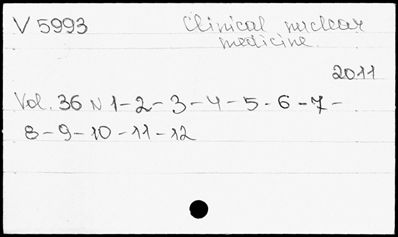 V 5993 Clinical nuclear
medicine.
2011
Vol. 36 N 1-2-3-4-5-6-7-
8-9-10-11-12